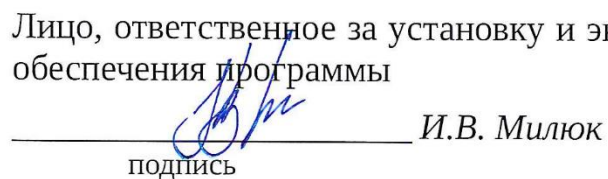 Лицо, ответственное за установку и эк
обеспечения программы
И.В. Милюк
подпись